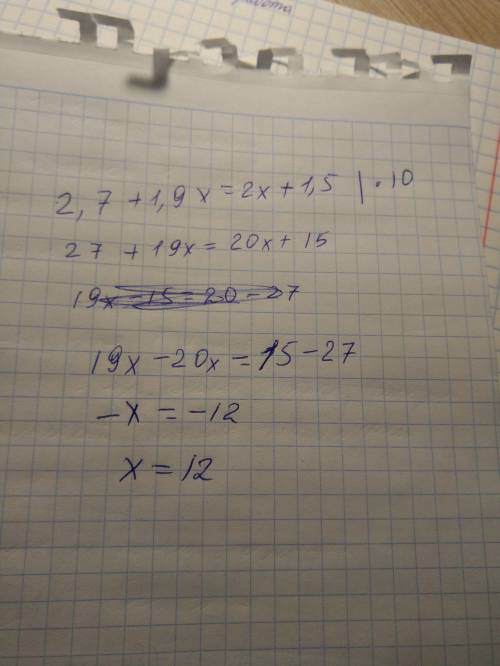 работа
2,7 + 1,9x = 2x + 1,5 | · 10
27 + 19x = 20x + 15
19x - 15 = 20 - 27
19x - 20x = 15 - 27
-x = -12
x = 12